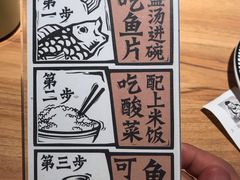 第一步
盅汤进碗
吃鱼片
第二步
配上米饭
吃酸菜
第三步
鱼
可